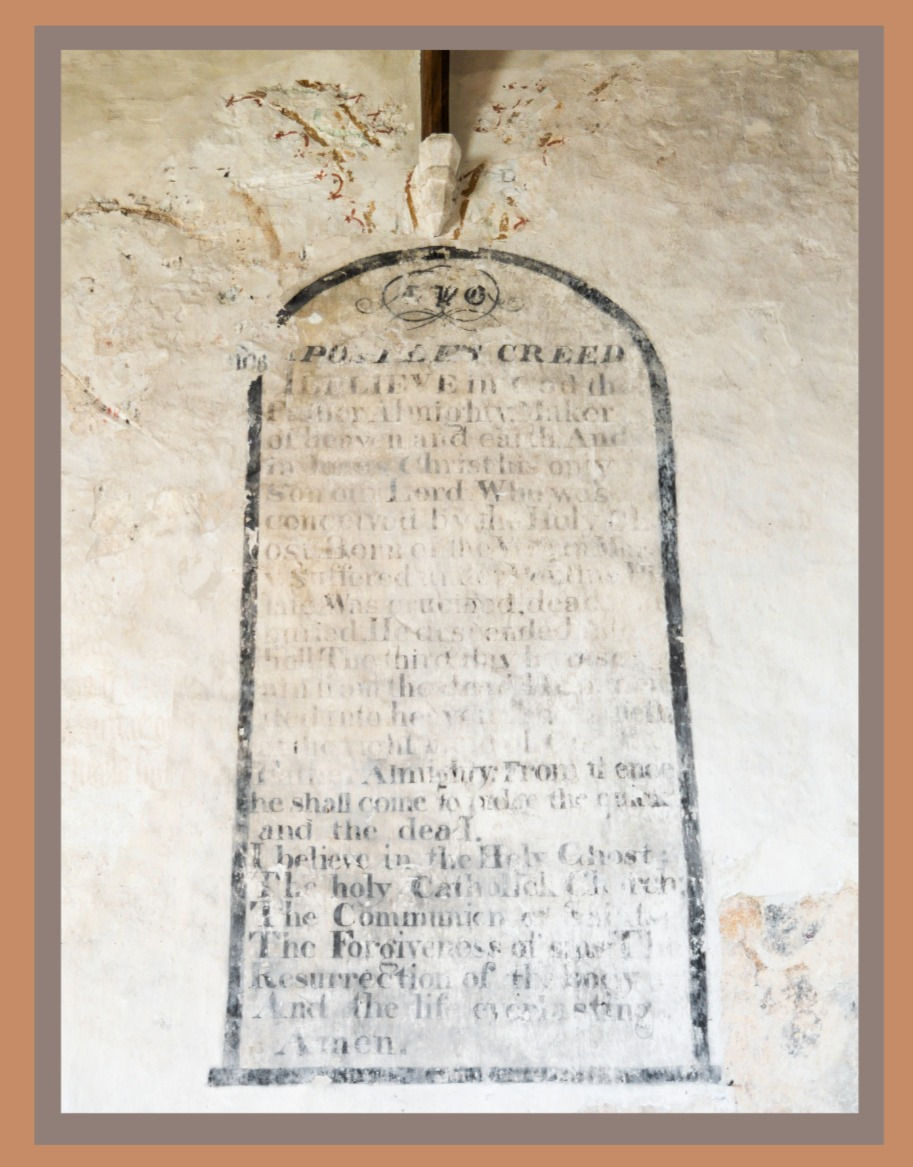 POSTLE'S CREED
I BELIEVE in God the
Father Almighty, Maker
of heaven and earth, And
in Jesus Christ his only
Son our Lord Who was
conceived by the Holy Gh
ost. Born of the Virgin Mar
y. Suffered under Pontius Pi
late Was crucified, dead
buried. He descended into
hell The third day he rose
ain from the dead. He
ded into heaven
at the right hand of
Father Almighty. From thence
he shall come to judge the quick
and the dead.
I believe in the Holy Ghost
The holy Catholick Church
The Communion of Saints
The Forgiveness of sins The
Resurrection of the body
And the life everlasting
Amen.